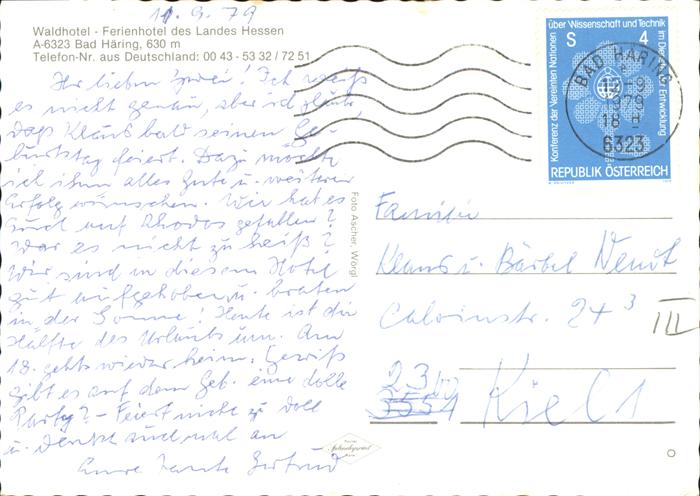 11.9.79
Waldhotel - Ferienhotel des Landes Hessen
A-6323 Bad Häring, 630 m
Telefon-Nr. aus Deutschland: 00 43 - 53 32 / 72 51
Ihr lieben zwei! Ich weiß
es nicht genau, aber ich glaube,
daß Klaus bald seinen Ge-
burtstag feiert. Dazu möchte
ich ihm alles Gute u. weiteren
Erfolg wünschen. Wie hat es
Euch auf Rhodos gefallen?
War es nicht zu heiß?
Wir sind in diesem Hotel
gut aufgehoben u. braten
in der Sonne! Heute ist die
Hälfte des Urlaubs um. Am
18. gehts wieder heim. Gewiß
gibt es auf dem Geb. eine dolle
Party? - Feiert nicht zu doll
u. denkt auch mal an
Eure Tante Gertrud
Foto Ascher, Wörgl
Konferenz der Vereinten Nationen
über Wissenschaft und Technik
im Dienste der Entwicklung
S 4
REPUBLIK ÖSTERREICH
BAD HÄRING
6323
Familie
Klaus u. Bärbel Wendt
Calvinstr. 24 3
III
23
Kiel 1